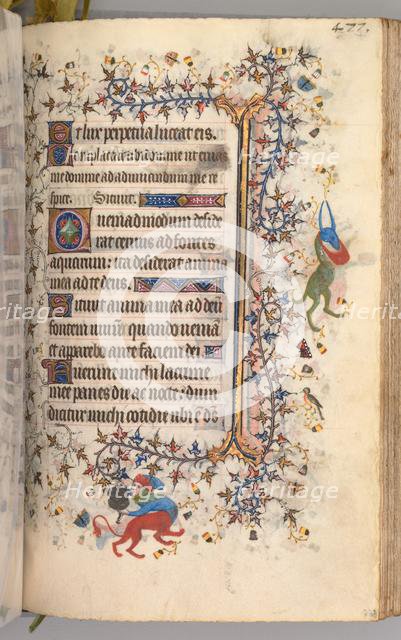 477.
Et lux perpetua luceat eis.
me domine ad adiuvandum me re
spice. Sitiuit.
Quemadmodum deside
rat cervus ad fontes
aquarum: ita desiderat anima
mea ad te deus.
Sitiuit anima mea ad deu
fontem vivum quando venia
et apparebo ante faciem dei
Fuerunt michi lacrime
mee panes die ac nocte: dum
dicitur michi cotidie ubi e ds
Heritage
Heritage
Heritage
Heritage
Heritage